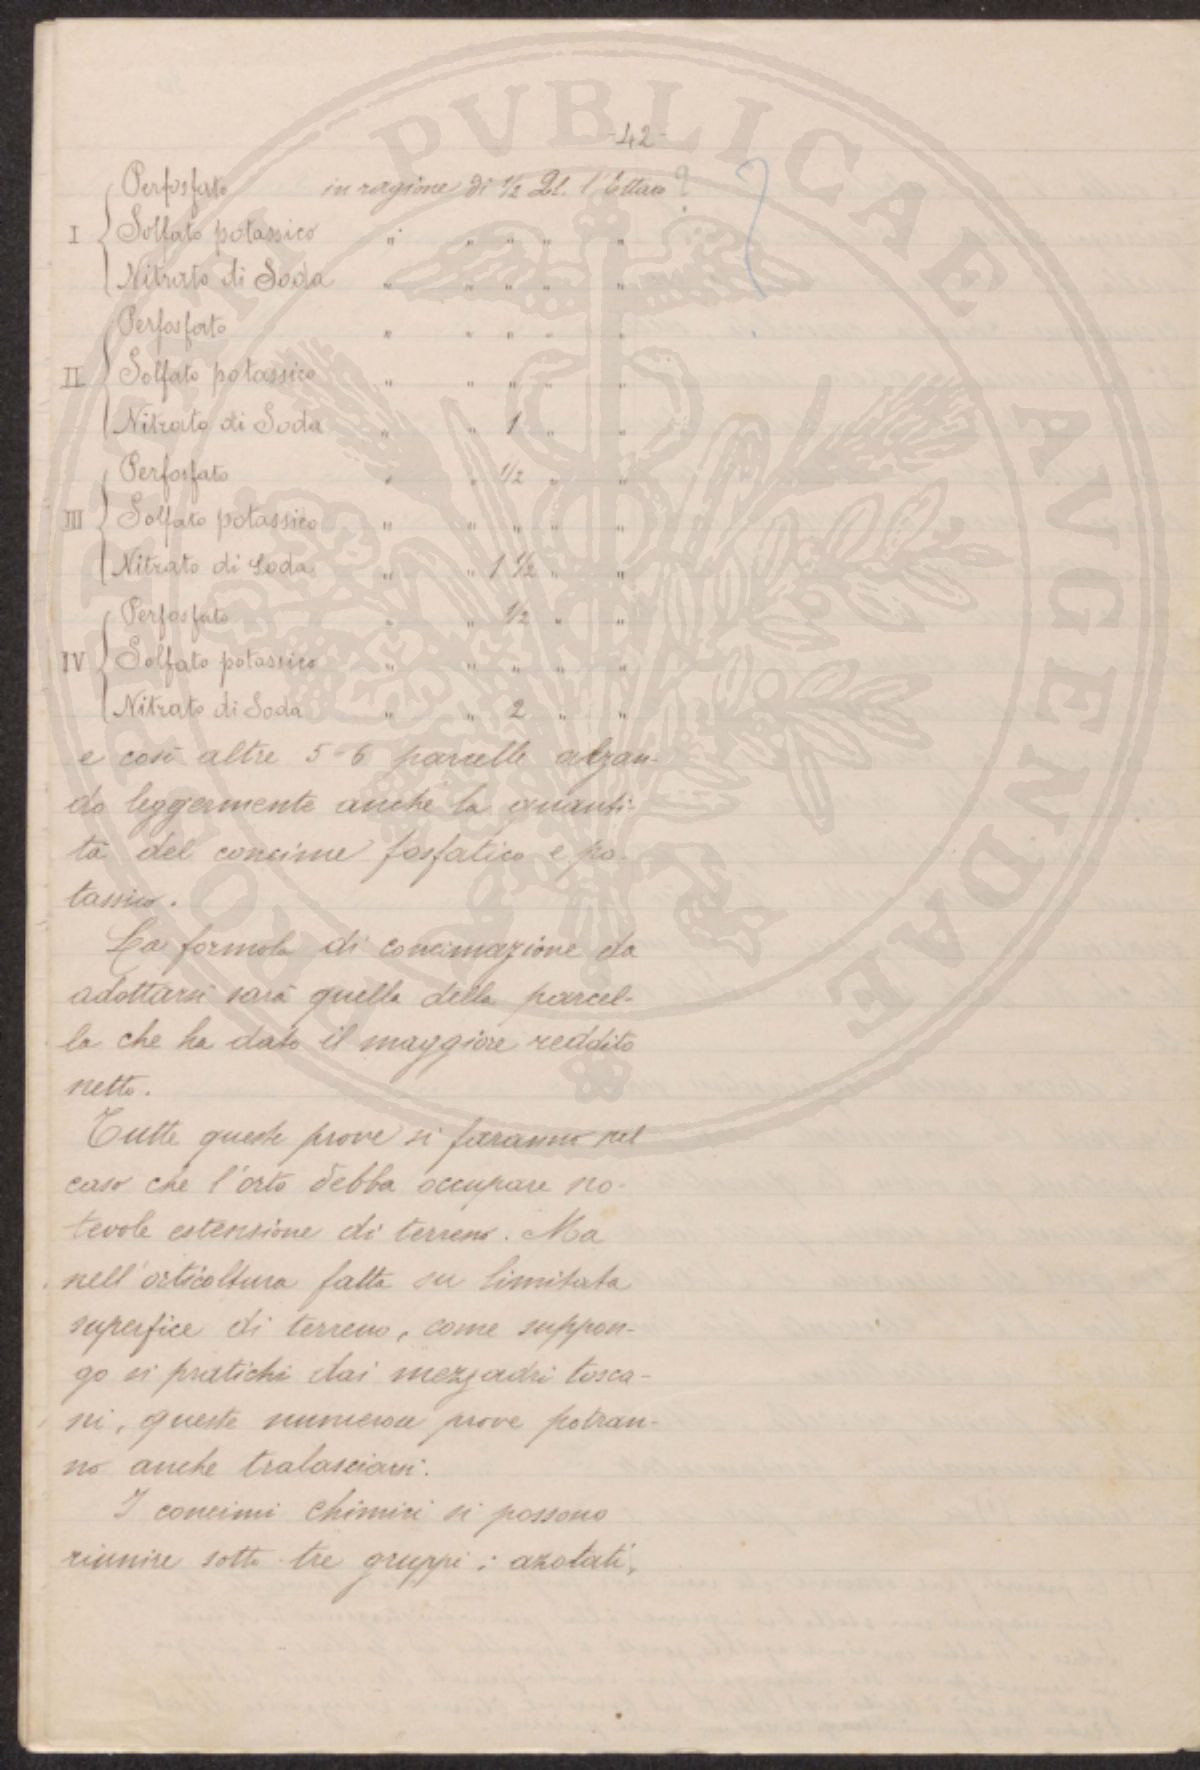 -42-
Perfosfato in ragione di ½ Ql. l'Ettaro ?
I Solfato potassico " " " " "
Nitrato di Soda " " " " "
Perfosfato " " " " "
II Solfato potassico " " " " "
Nitrato di Soda " " 1 " "
Perfosfato " " ½ " "
III Solfato potassico " " " " "
Nitrato di Soda " " 1 ½ " "
Perfosfato " " ½ " "
IV Solfato potassico " " " " "
Nitrato di Soda " " 2 " "
e così altre 5-6 parcelle alzan-
do leggermente anche la quanti-
tà del concime fosfatico e po-
tassico.
La formola di concimazione da
adottarsi sarà quella della parcel-
la che ha dato il maggiore reddito
netto.
Tutte queste prove si faranno nel
caso che l'orto debba occupare no-
tevole estensione di terreno. Ma
nell'orticoltura fatta su limitata
superfice di terreno, come suppon-
go si pratichi dai mezzadri tosca-
ni, queste numerose prove potran-
no anche tralasciarsi.
I concimi chimici si possono
riunire sotto tre gruppi: azotati,
PVBLICAE AVGENDAE